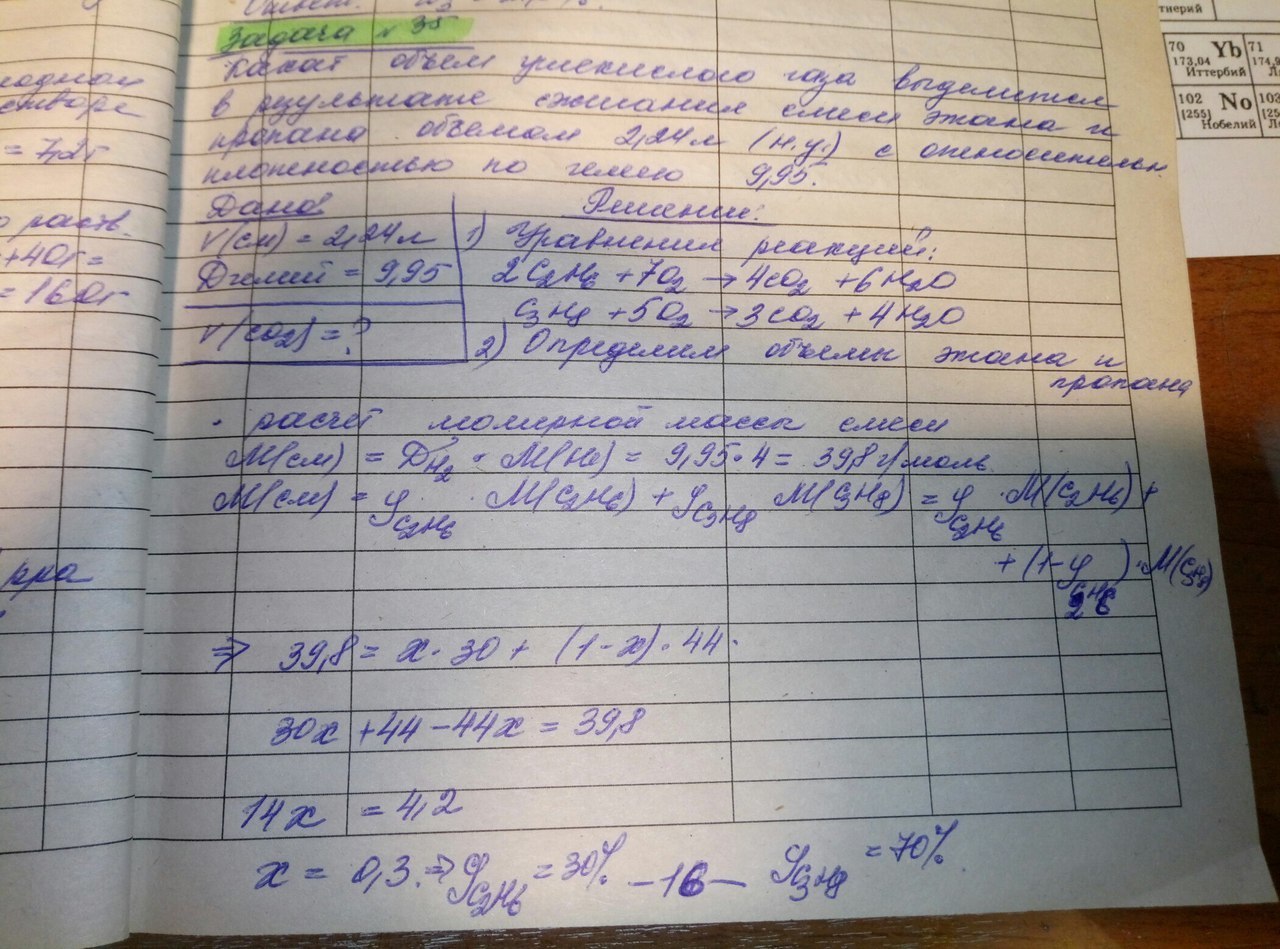 Задача № 35
Какой объем углекислого газа выделится
в результате сжигания смеси этана и
пропана объемом 2,24 л (н.у.) с относительн.
плотностью по гелию 9,95.
Дано:
Решение:
V(см) = 2,24 л
Dгелий = 9,95
V(CO2) = ?
1) Уравнения реакций:
2C2H6 + 7O2 → 4CO2 + 6H2O
C3H8 + 5O2 → 3CO2 + 4H2O
2) Определим объемы этана и
пропана
· расчет молярной массы смеси
M(см) = DH2 · M(He) = 9,95 · 4 = 39,8 г/моль
M(см) = φC2H6 · M(C2H6) + φC3H8 M(C3H8) = φC2H6 · M(C2H6) +
+ (1-φC2H6) · M(C3H8)
⇒ 39,8 = x · 30 + (1-x) · 44.
30x + 44 - 44x = 39,8
14x = 4,2
x = 0,3. ⇒ φC2H6 = 30% -16- φC3H8 = 70%
= 7,2г
раств.
+40г =
= 160г
70 Yb 71
173,04
Иттербий
102 No 103
[255]
Нобелий